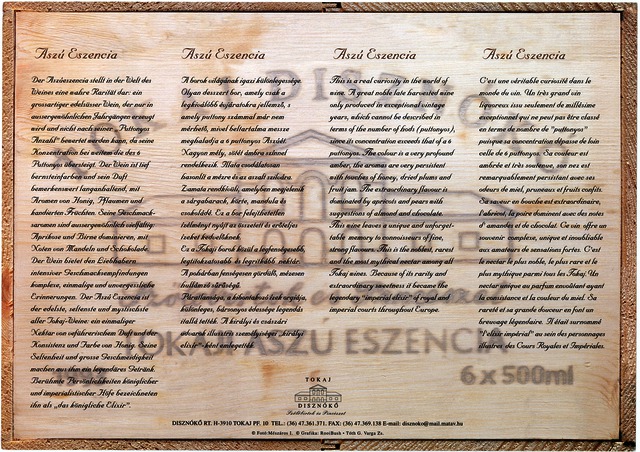 Aszú Eszencia
Der Aszúeszencia stellt in der Welt des
Weines eine wahre Rarität dar: ein
grossartiger edelsüsser Wein, der nur in
aussergewöhnlichen Jahrgängen erzeugt
wird und nicht nach einer „Puttonyos
Anzahl" bewertet werden kann, da seine
Konzentration bei weitem die des 6
Puttonyos übersteigt. Der Wein ist tief
bernsteinfarben und sein Duft
bemerkenswert langanhaltend, mit
Aromen von Honig, Pflaumen und
kandierten Früchten. Seine Geschmack-
saromen sind aussergewöhnlich vielfältig:
Aprikose und Birne dominieren, mit
Noten von Mandeln und Schokolade.
Der Wein bietet den Liebhabern
intensiver Geschmacksempfindungen
komplexe, einmalige und unvergessliche
Erinnerungen. Der Aszú Eszencia ist
der edelste, seltenste und mystischste
aller Tokaj-Weine: ein einmaliger
Nektar von verführerischem Duft und der
Konsistenz und Farbe von Honig. Seine
Seltenheit und grosse Geschmeidigkeit
machen aus ihm ein legendäres Getränk.
Berühmte Persönlichkeiten königlicher
und imperialistischer Höfe bezeichneten
ihn als „das königliche Elixir".
Aszú Eszencia
A borok világának igazi különlegessége
Olyan desszert bor, amely csak a
legkiválóbb évjáratokra jellemző, s
amely puttony számmal már nem
mérhető, mivel beltartalma messze
meghaladja a 6 puttonyos Aszúét.
Nagyon mély, sötét ámbra színnel
rendelkezik. Illata csodálatosan
hasonlít a mézre és az aszalt szilvára.
Zamata rendkívüli, amelyben megjelenik
a sárgabarack, körte, mandula és
csokoládé. Ez a bor felejthetetlen
ízélményt nyújt az összetett és erőteljes
ízeket kedvelőknek.
Ez a Tokaji borok közül a legfenségesebb,
legtitokzatosabb és legritkább nektár.
A pohárban fenségesen gördülő, mézesen
hullámzó sűrűségű.
Páratlansága, a kóbntatásúsc
különleges, bársonyos édessége legendás
itallá tették. A királyi és császári
udvarok illusztris személyiségei „királyi
elixír"-ként emlegették.
Aszú Eszencia
This is a real curiosity in the world of
wine. A great noble late harvested wine
only produced in exceptional vintage
years, which cannot be described in
terms of the number of hods (puttonyos),
since its concentration exceeds that of a 6
puttonyos. The colour is a very profound
amber, the aromas are very persistent
with touches of honey, dried plums and
fruit jam. The extraordinary flavour is
dominated by apricots and pears with
suggestions of almond and chocolate.
This wine leaves a unique and unforget-
table memory to connoisseurs of fine,
strong flavours. This is the noblest, rarest
and the most mythical nectar among all
Tokaj wines. Because of its rarity and
extraordinary sweetness it became the
legendary "imperial elixir" of royal and
imperial courts throughout Europe.
Aszú Eszencia
C'est une véritable curiosité dans le
monde du vin. Un très grand vin
liquoreux issu seulement de millésime
exceptionnel qui ne peut pas être classé
en terme de nombre de "puttonyos"
puisque sa concentration dépasse de loin
celle de 6 puttonyos. Sa couleur est
ambrée et très soutenue, son nez est
remarquablement persistant avec ses
odeurs de miel, pruneaux et fruits confits.
Sa saveur en bouche est extraordinaire,
l'abricot, la poire dominent avec des notes
d' amande et de chocolat. Ce vin, offre un
souvenir complexe, unique et inoubliable
aux amateurs de sensations fortes. C'est
le nectar le plus noble, le plus rare et le
plus mythique parmi tous les Tokaj. Un
nectar unique au parfum envoûtant ayant
la consistance et la couleur du miel. Sa
rareté et sa grande douceur en font un
breuvage légendaire. Il était surnommé
"l'elixir impérial" au sein des personnages
illustres des Cours Royales et Impériales.
TOKAJI ASZÚ ESZENCIA
6 x 500ml
TOKAJ
DISZNÓKŐ
Szőlőbirtok és Pincészet
DISZNÓKŐ RT. H-3910 TOKAJ PF. 10 TEL.: (36) 47.361.371. FAX: (36) 47.369.138 E-mail: disznoko@mail.matav.hu
© Fotó-Mészáros I. © Grafika: RoseBush • Tóth G. Varga Zs.